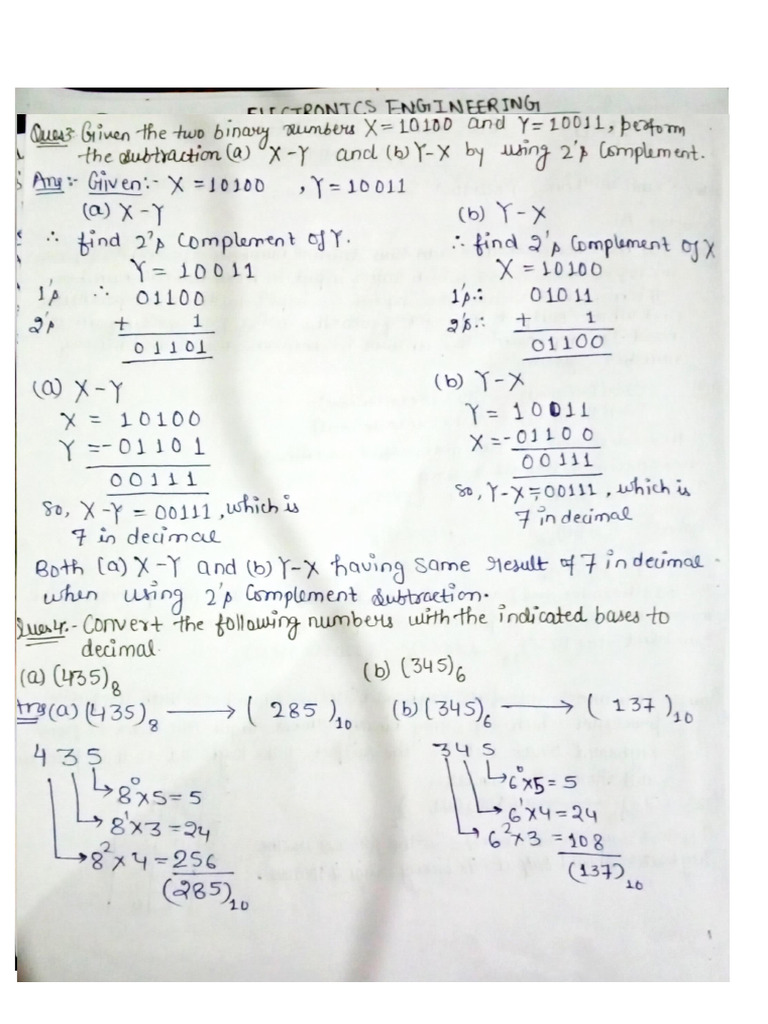 ELECTRONICS ENGINEERING
Ques3- Given the two binary numbers X = 10100 and Y = 10011, perform
the subtraction (a) X-Y and (b) Y-X by using 2's complement.
Ans:- Given:- X = 10100 , Y = 10011
(a) X-Y
∴ find 2's complement of Y.
Y = 10011
1's ∴ 01100
2's + 1
01101
(b) Y-X
∴ find 2's complement of X
X = 10100
1's ∴ 01011
2's ∴ + 1
01100
(a) X-Y
X = 10100
Y = -01101
00111
so, X-Y = 00111, which is
7 in decimal
(b) Y-X
Y = 10011
X = -01100
00111
so, Y-X = 00111, which is
7 in decimal
Both (a) X-Y and (b) Y-X having same result of 7 in decimal
when using 2's complement subtraction.
Ques4.- Convert the following numbers with the indicated bases to
decimal.
(a) (435)₈ (b) (345)₆
Ans (a) (435)₈ ⟶ (285)₁₀ (b) (345)₆ ⟶ (137)₁₀
4 3 5
8⁰×5 = 5
8¹×3 = 24
8²×4 = 256
(285)₁₀
3 4 5
6⁰×5 = 5
6¹×4 = 24
6²×3 = 108
(137)₁₀